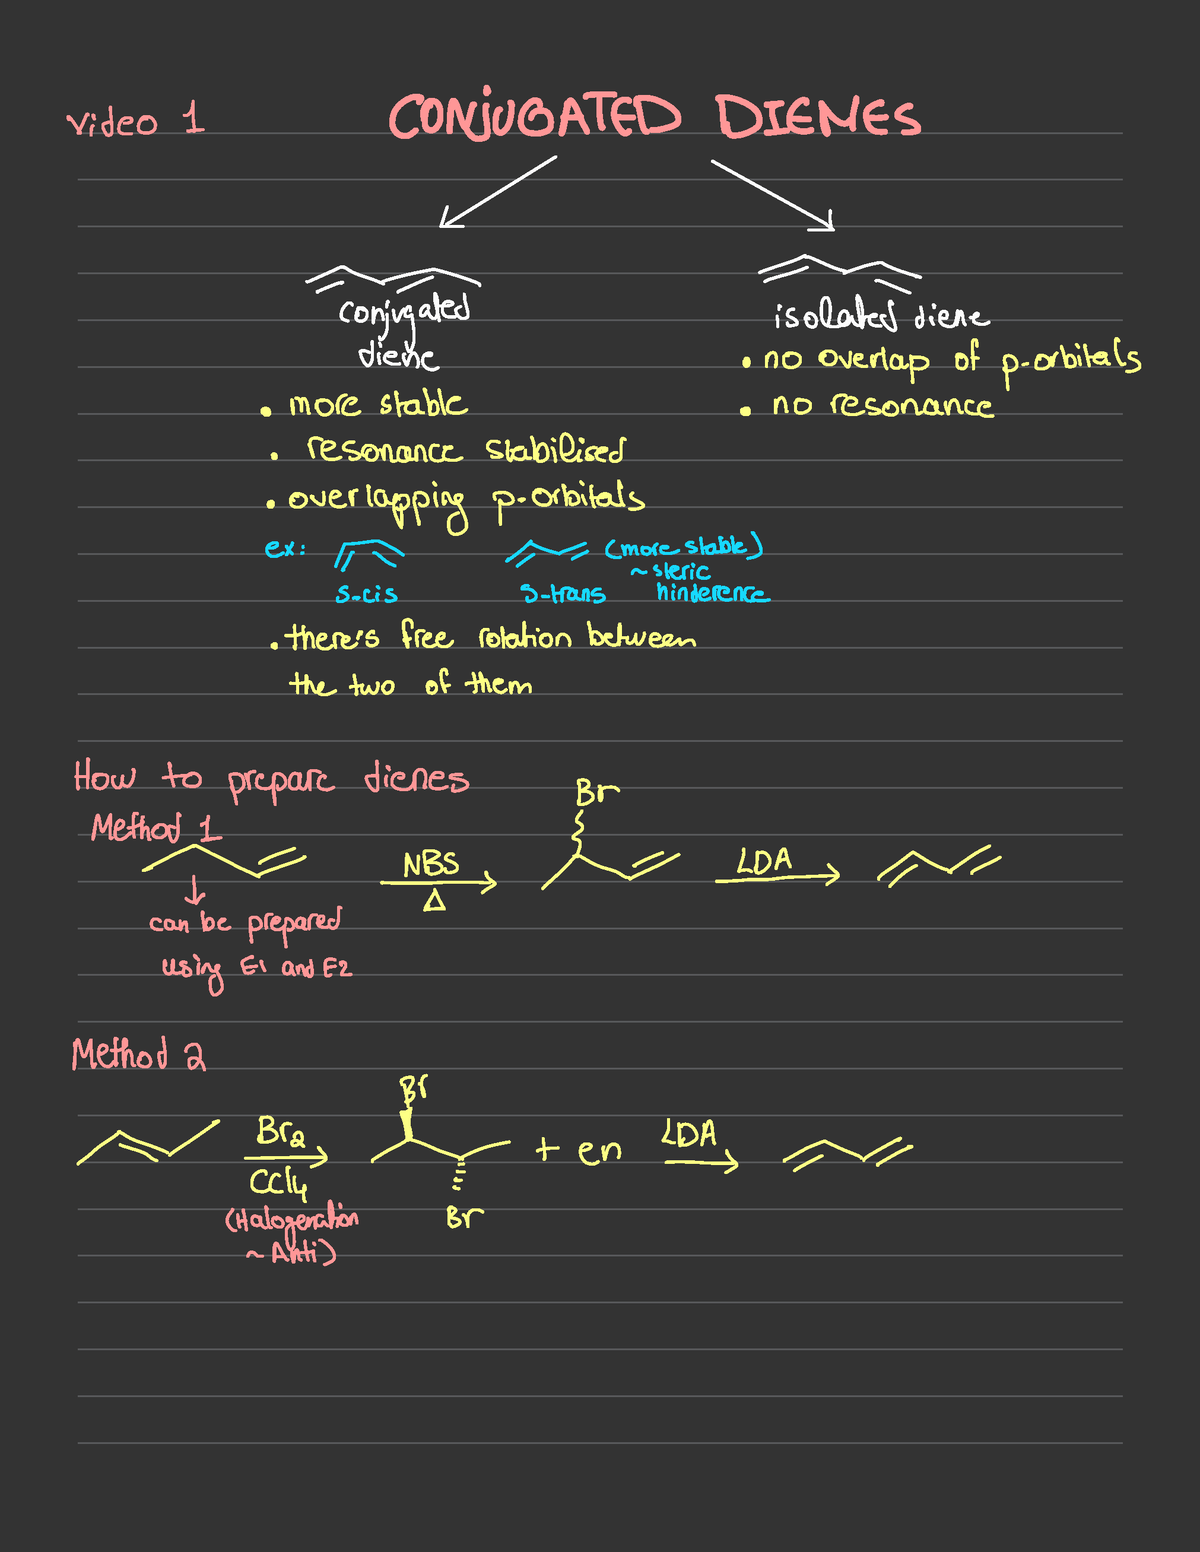 video 1
CONJUGATED DIENES
conjugated
diene
• more stable
• resonance stabilised
• overlapping p-orbitals
ex:
s-cis
s-trans
(more stable)
~ steric
hinderence
• there's free rotation between
the two of them
isolated diene
• no overlap of p-orbitals
• no resonance
How to prepare dienes
Method 1
can be prepared
using E1 and E2
NBS
Δ
Br
LDA
Method 2
Br2
CCl4
(Halogenation
~ Anti)
Br
Br
+ en
LDA